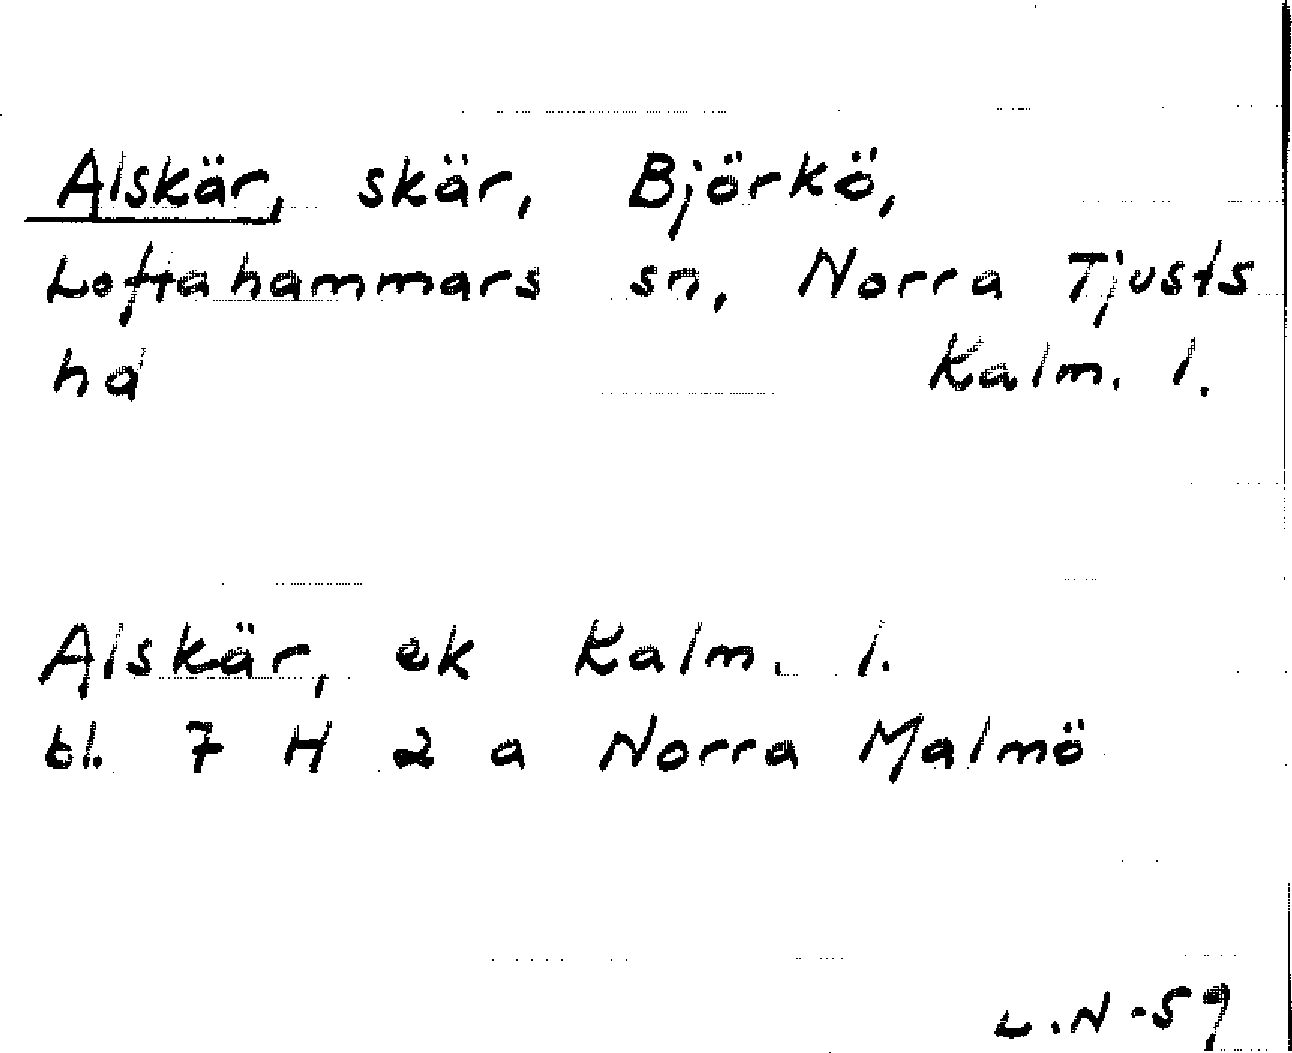 Alskär, skär, Björkö,
Loftahammars sn, Norra Tjusts
hd Kalm. l.
Alskär, ek Kalm. l.
bl. 7 H 2 a Norra Malmö
L.N-59